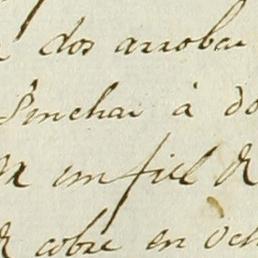 dos arrobas
Pinchar à do
un fiel &
& cobre en och